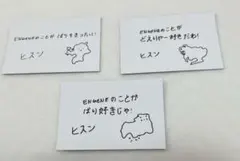 ENHYPENのことが ばりすきったい!
ヒスン
ENHYPENのことが
どえりゃー好きだわ!
ヒスン
ENHYPENのことが
ばり好きじゃ!
ヒスン